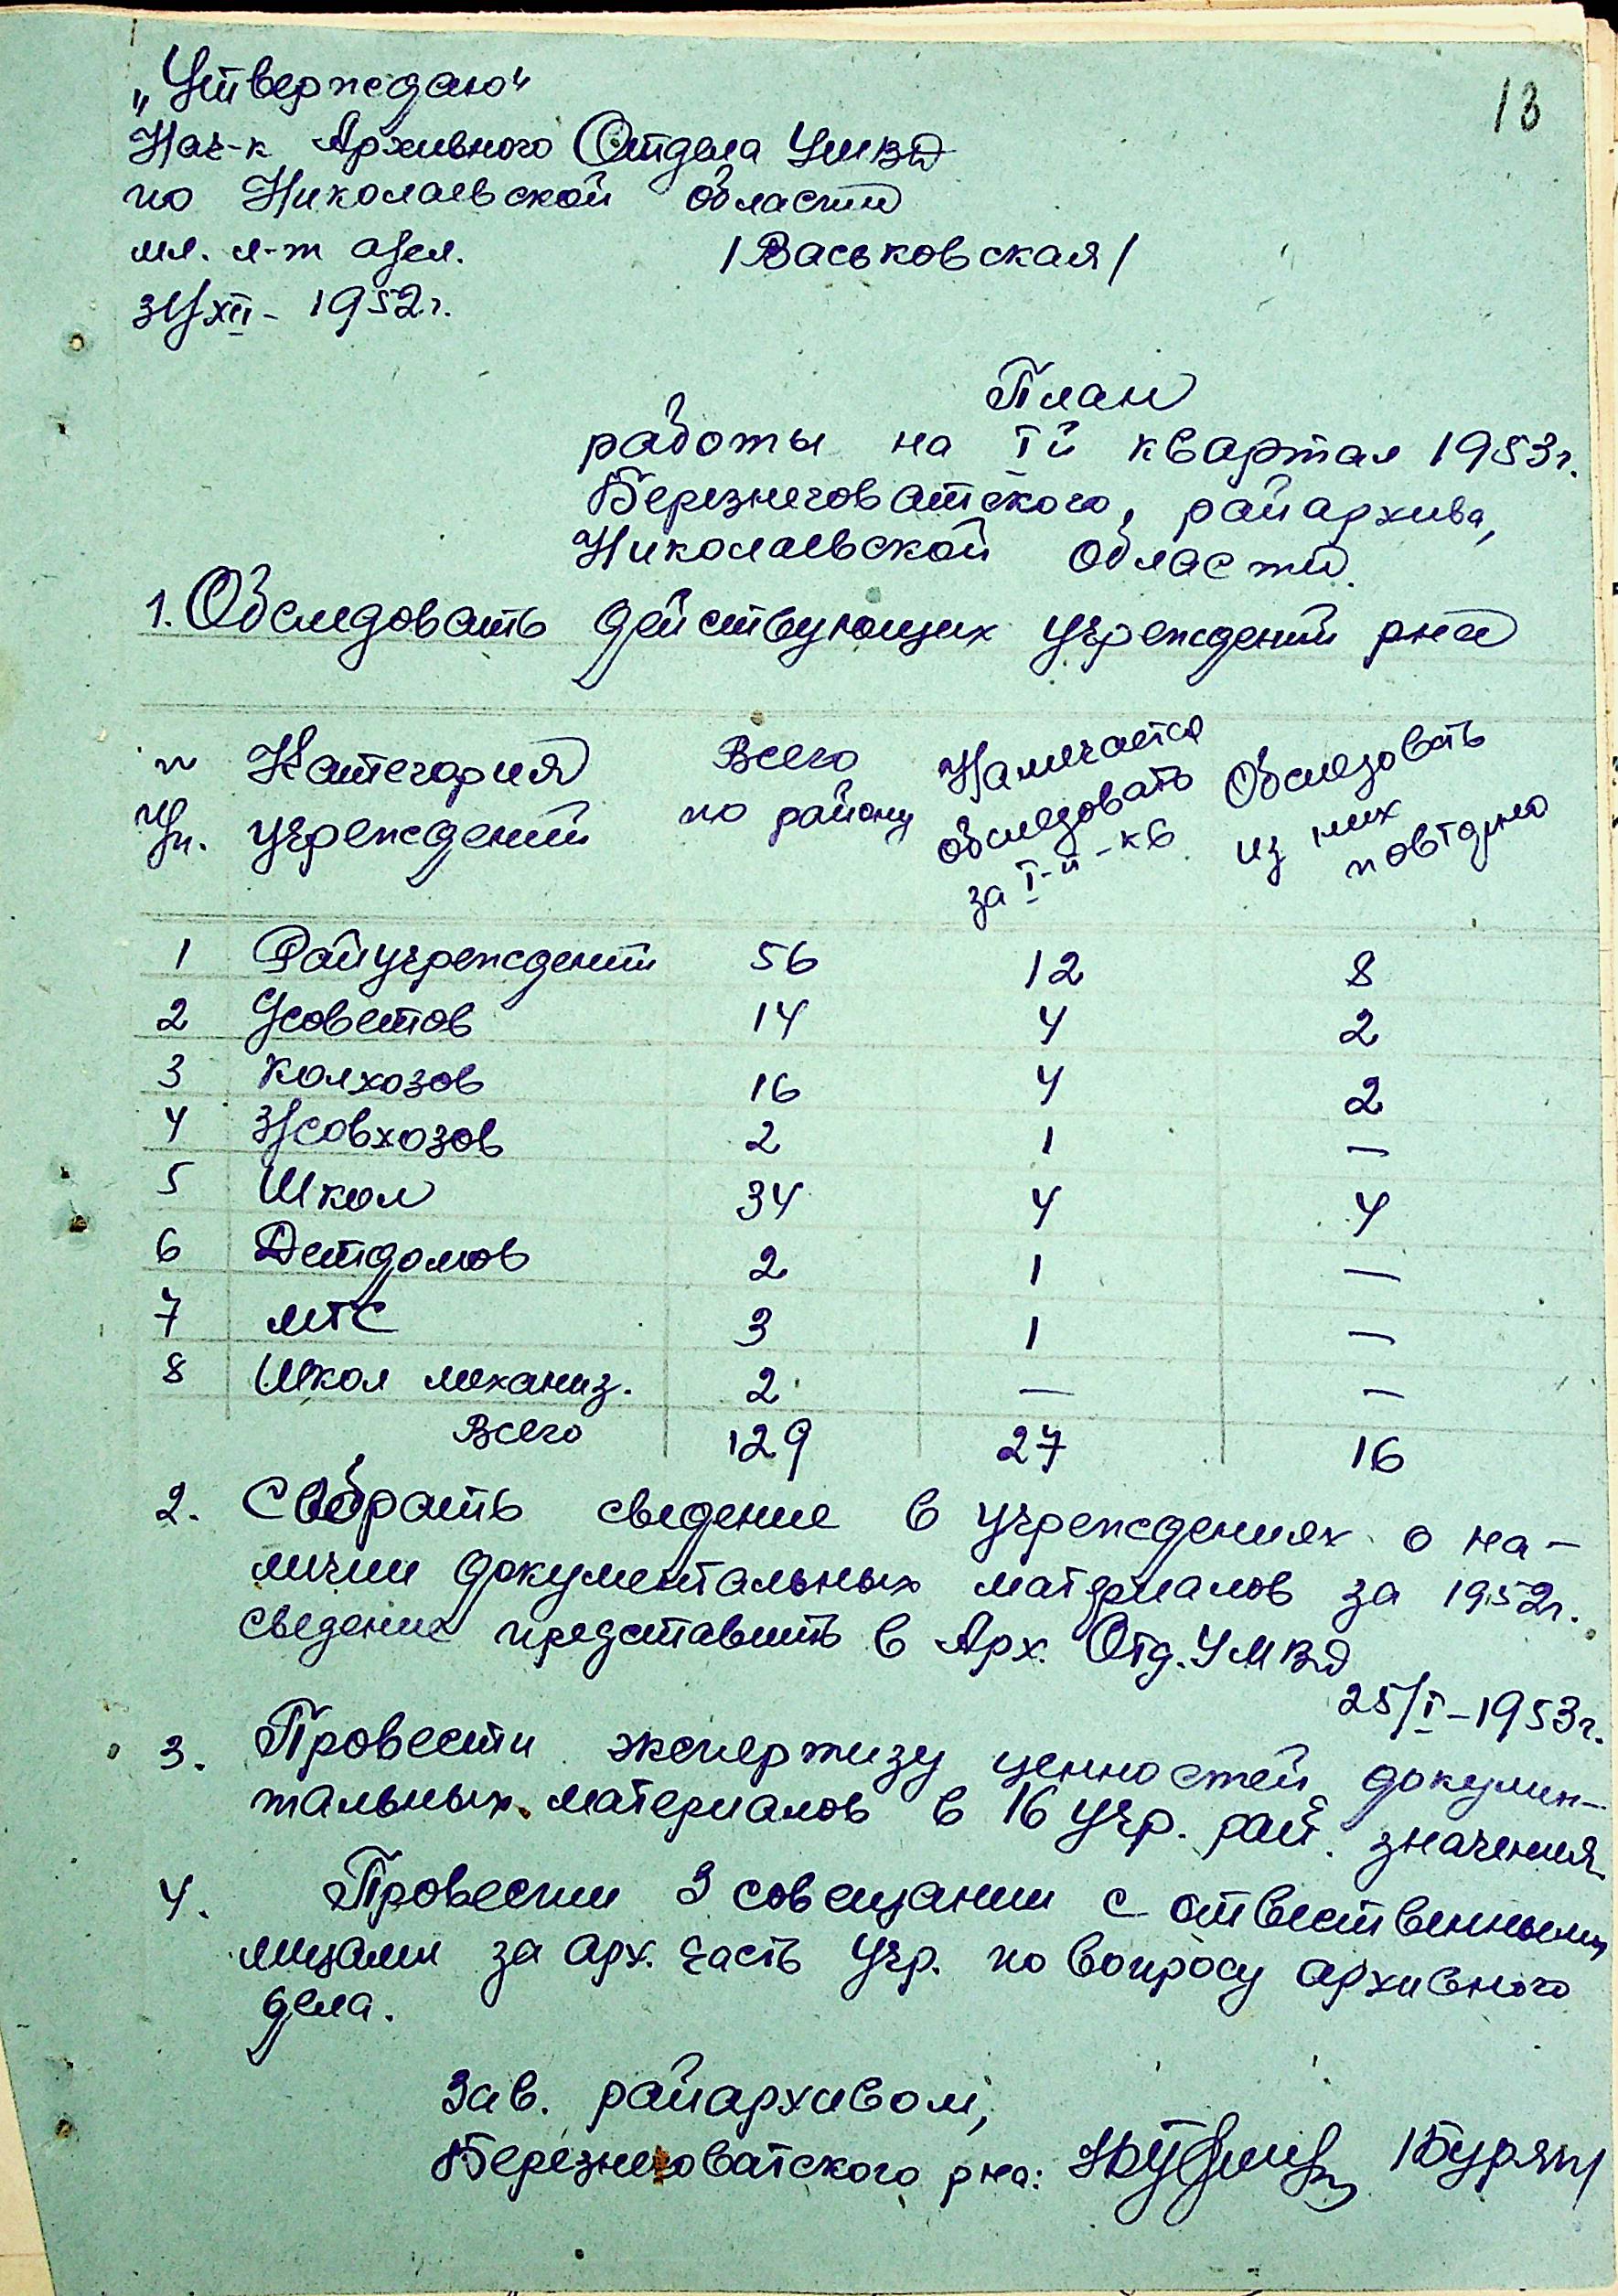 13
„Утверждаю"
Нач-к Архивного Отдела УМВД
по Николаевской области
мл. л-т
/Васьковская/
31/XII - 1952г.
План
работы на I й квартал 1953г.
Березнеговатского, райархива,
Николаевской области.
1. Обследовать действующих учреждений рна
п/п. Категория учреждений Всего по району Намечается обследовать за I-й-кв Обследовать из них повторно
1 Райучреждений 56 12 8
2 С/советов 14 4 2
3 Колхозов 16 4 2
4 З/совхозов 2 1 —
5 Школ 34 4 4
6 Детдомов 2 1 —
7 МТС 3 1 —
8 Школ механиз. 2 — —
Всего 129 27 16
2. Собрать сведение в учреждениях о на-
личии документальных материалов за 1952г.
сведение представить в Арх. Отд. УМВД
25/I-1953г.
3. Провести экспертизу ценностей докумен-
тальных материалов в 16 учр. рай. значения
4. Провести 3 совещании с ответственными
лицами за арх. часть учр. по вопросу архивного
дела.
Зав. райархивом,
Березнеговатского рна: /Буряк/